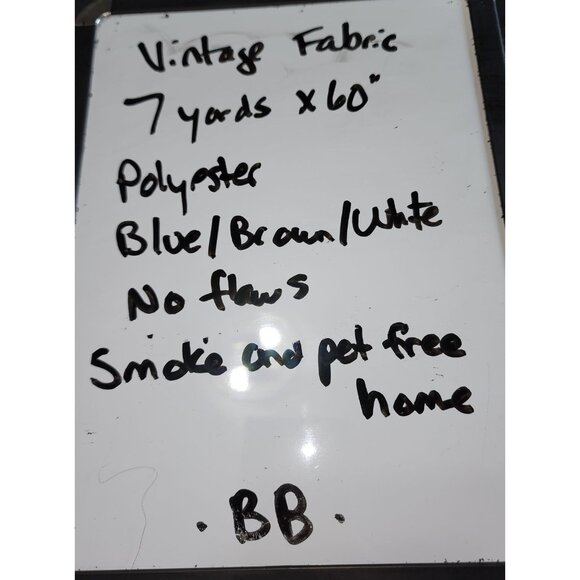 Vintage Fabric
7 yards x 60"
Polyester
Blue/Brown/White
No flaws
Smoke and pet free
home
. BB .